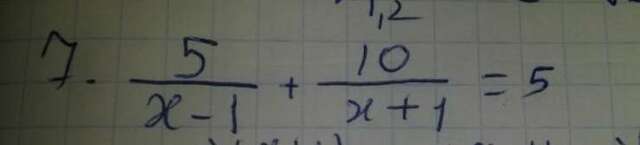 1,2
7. 5/(x-1) + 10/(x+1) = 5